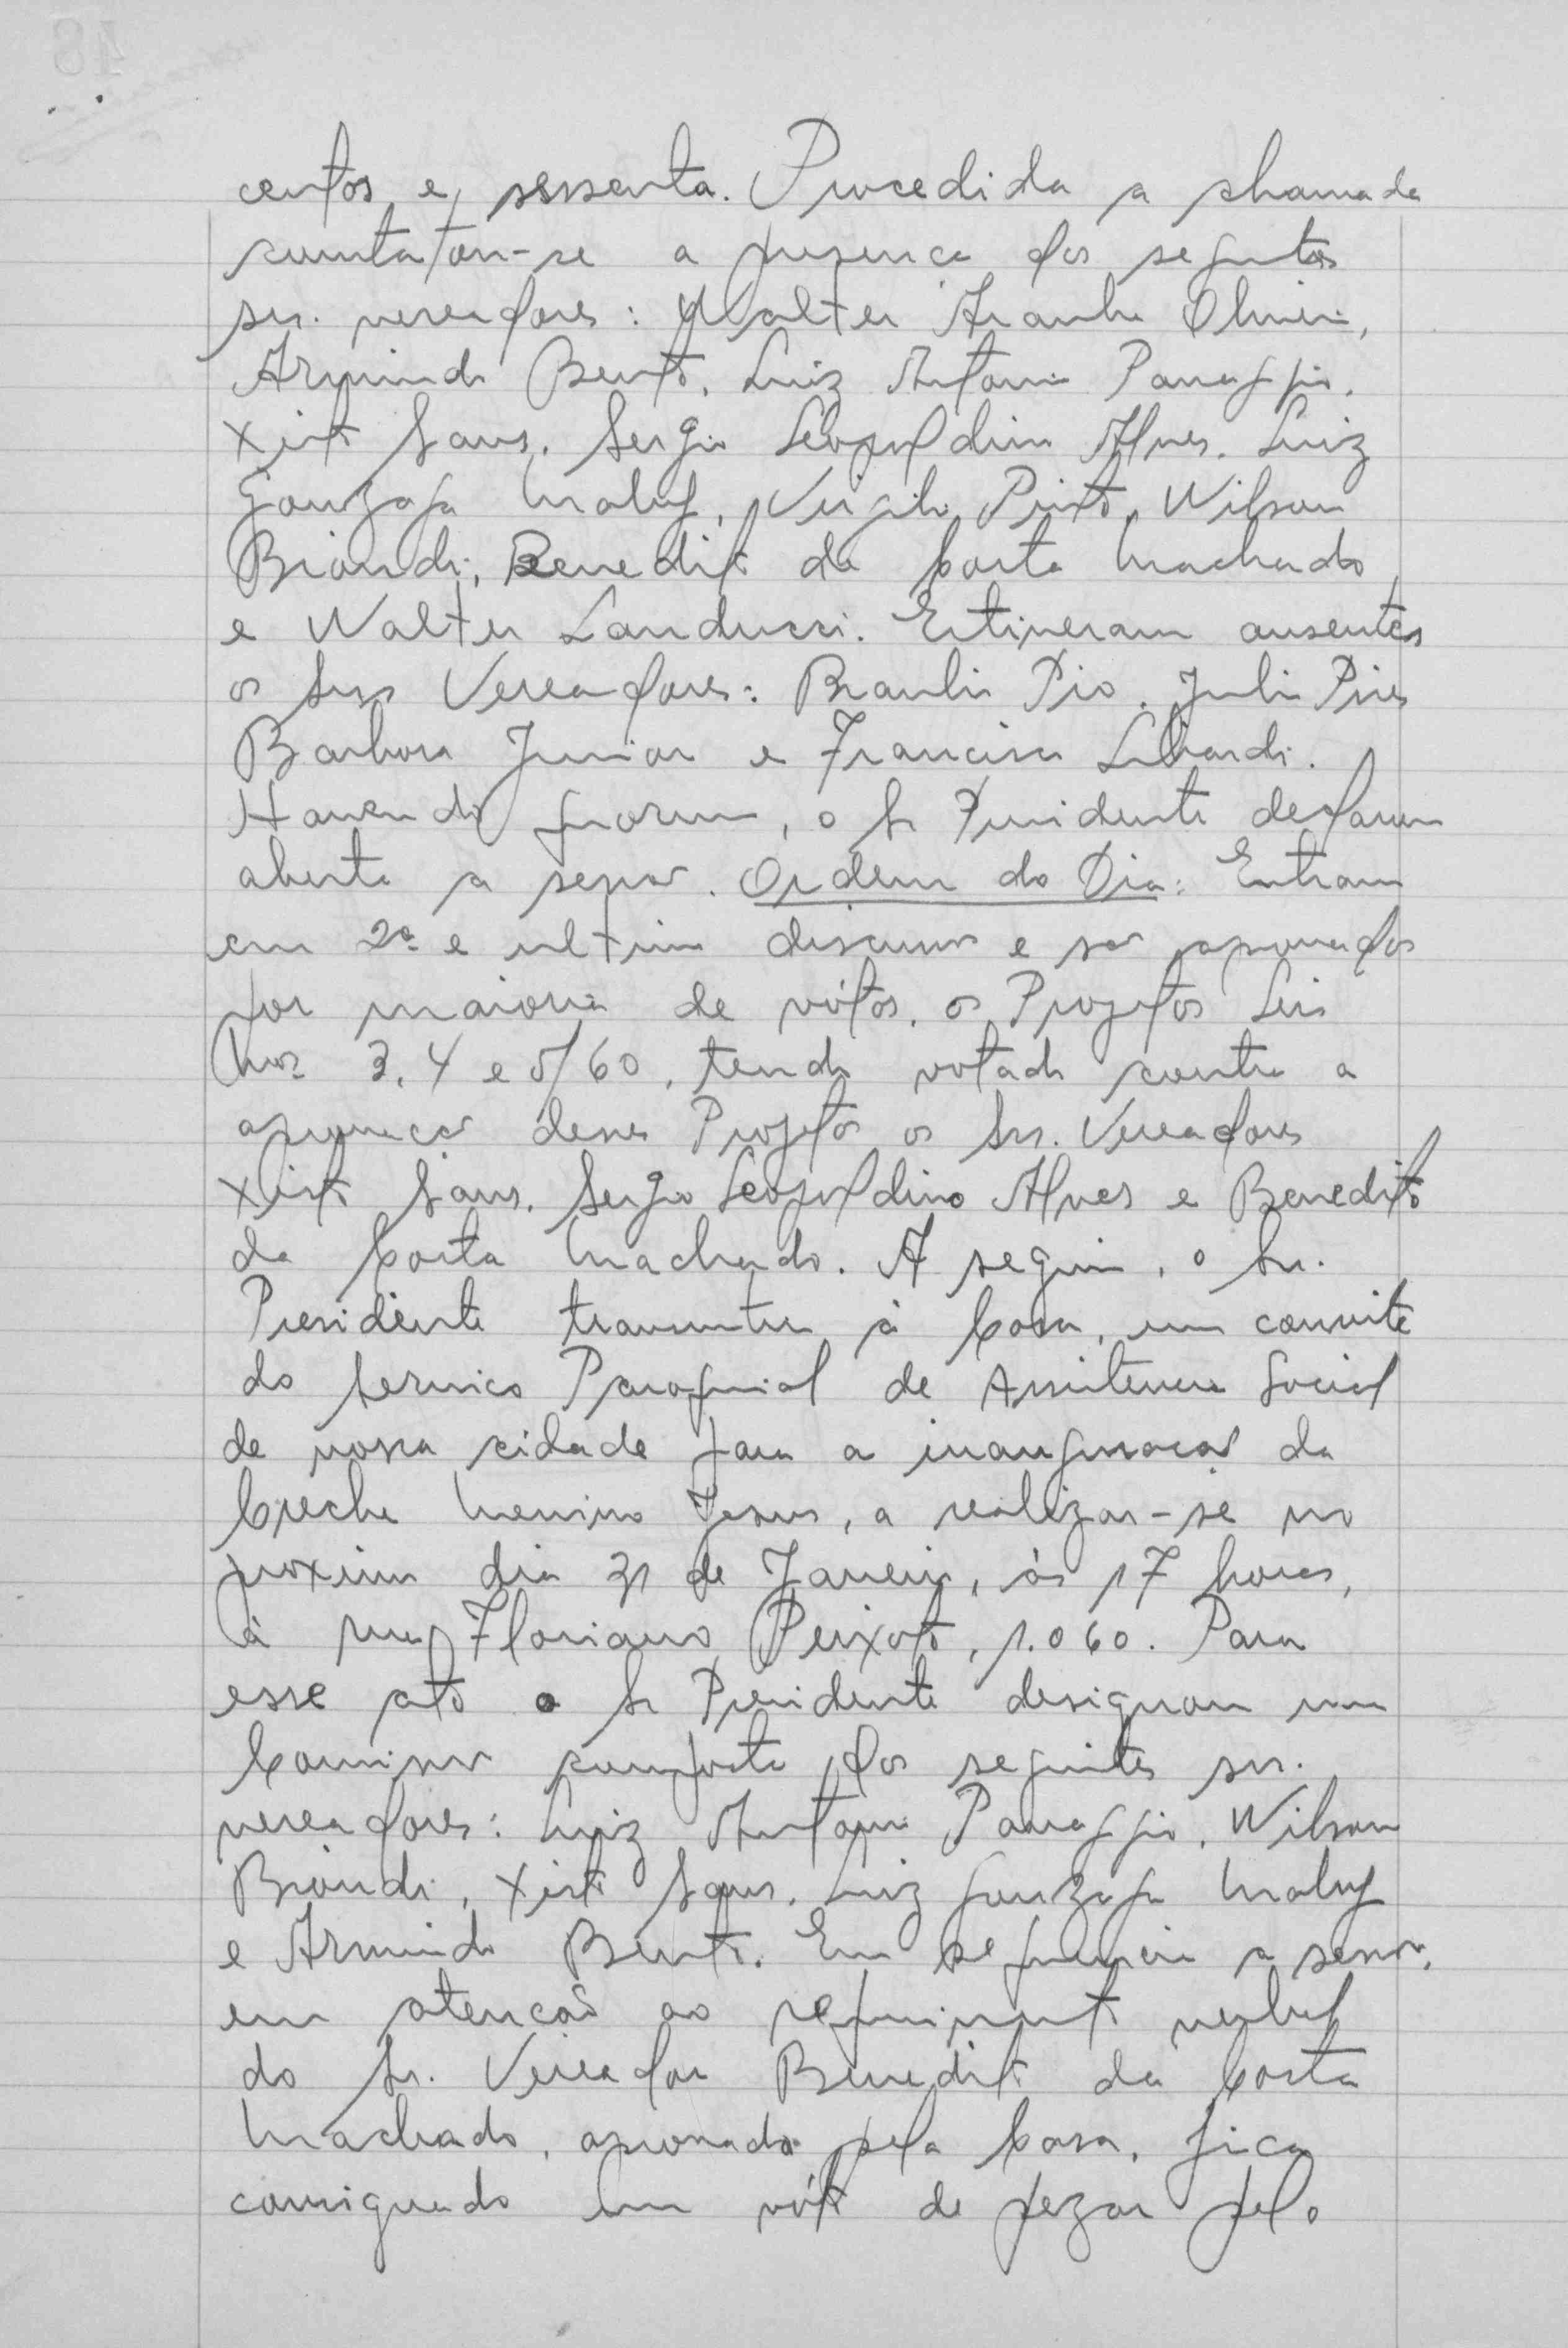 centos e sessenta. Procedida a chamada
constatou-se a presença dos seguintes
srs. vereadores: Walter Aranha Oliveira,
Armindo Bento, Luiz Antonio Panaggio,
Xisto Sans, Sergio Leopoldino Alves, Luiz
Gonzaga Maluf, Virgilio Pinto, Wilson
Biondi, Benedito da Costa Machado
e Walter Landucci. Estiveram ausentes
os Srs Vereadores: Braulio Pio, Julio Pires
Barbosa Junior e Francisco Libardi.
Havendo quorum, o Sr Presidente declarou
aberta a sessão. Ordem do Dia: Entram
em 2ª e ultima discussão e são aprovados
por maioria de vótos, os Projetos Leis
Nos 3, 4 e 5/60, tendo votado contra a
aprovação desses Projetos os Srs. Vereadores
Xisto Sans, Sergio Leopoldino Alves e Benedito
da Costa Machado. A seguir, o Sr.
Presidente transmitiu à Casa, um convite
do Serviço Paroquial de Assistencia Social
de nossa cidade para a inauguração da
Creche Menino Jesus, a realizar-se no
proximo dia 31 de Janeiro, às 17 horas,
à rua Floriano Peixoto, 1.060. Para
esse ato o Sr Presidente designou uma
Comissão composta dos seguintes srs.
vereadores: Luiz Antonio Panaggio, Wilson
Biondi, Xisto Sans, Luiz Gonzaga Maluf
e Armindo Bento. Em sequencia a sessão,
em atenção ao requerimento verbal
do Sr. Vereador Benedito da Costa
Machado, aprovado pela Casa, fica
consignado um vóto de pezar pelo